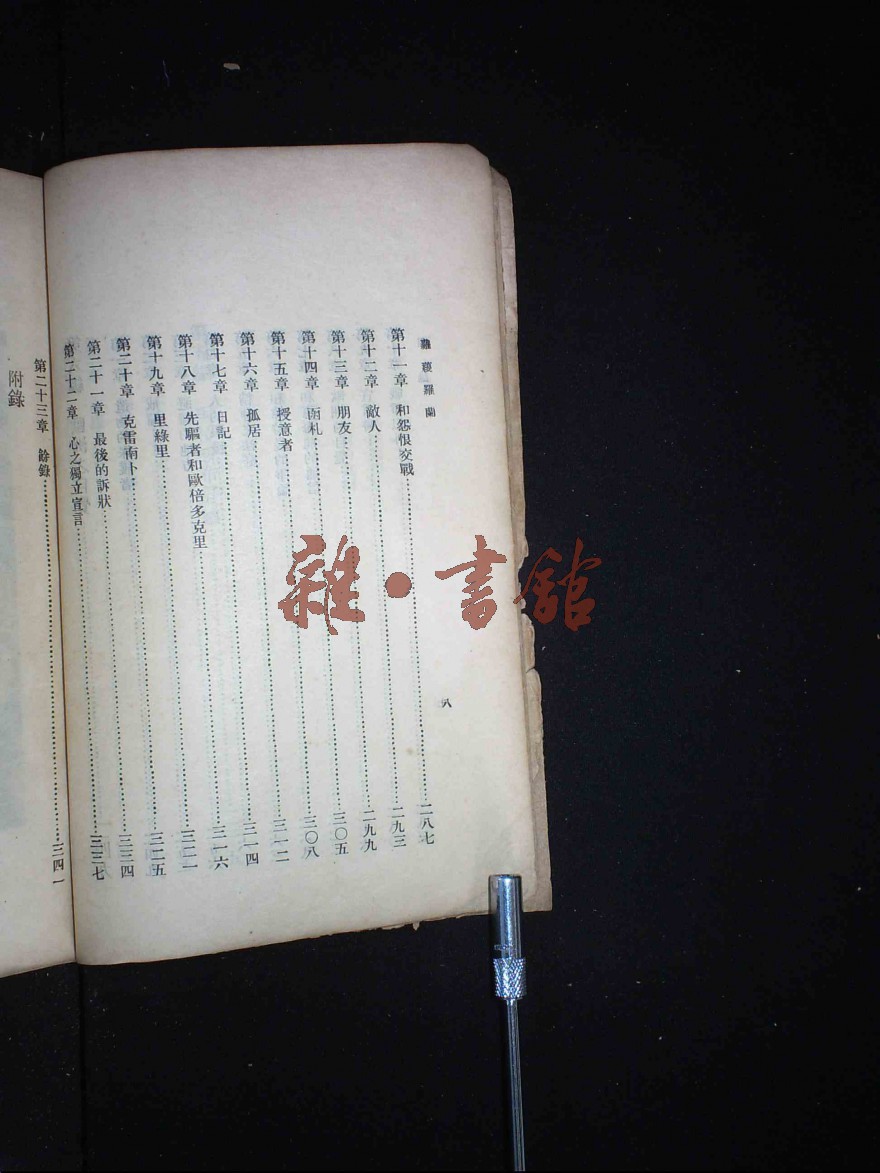 羅蘭
八
第十一章 和怨恨交戰……二八七
第十二章 敵人……二九三
第十三章 朋友……二九九
第十四章 函札……三〇五
第十五章 授意者……三〇八
第十六章 孤居……三一二
第十七章 日記……三一四
第十八章 先驅者和歐倍多克里……三一六
第十九章 里綠里……三二一
第二十章 克雷南卜……三二五
第二十一章 最後的訴狀……三三四
第二十二章 心之獨立宣言……三三七
第二十三章 餘錄……三四一
附錄
雜·書館